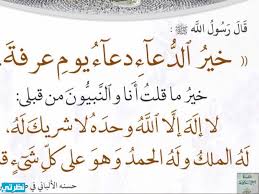 قَالَ رَسُولُ اللَّهِ ﷺ :
(( خَيْرُ الدُّعَآءِ دُعَآءُ يَوْمِ عَرَفَةَ.
خَيْرُ مَا قُلْتُ أَنَا وَالنَّبِيُّونَ مِن قَبْلِي:
لَا إِلَهَ إِلَّا اللَّهُ وَحْدَهُ لَا شَرِيكَ لَهُ،
لَهُ المُلْكُ وَلَهُ الحَمْدُ وَهُوَ عَلَى كُلِّ شَيْءٍ قَ
حسنه الألباني في
نظرتي